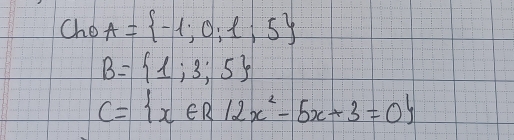 Cho A = {-1; 0; 1; 5}
B = {1; 3; 5}
C = {x ∈ R / 2x² - 5x + 3 = 0}